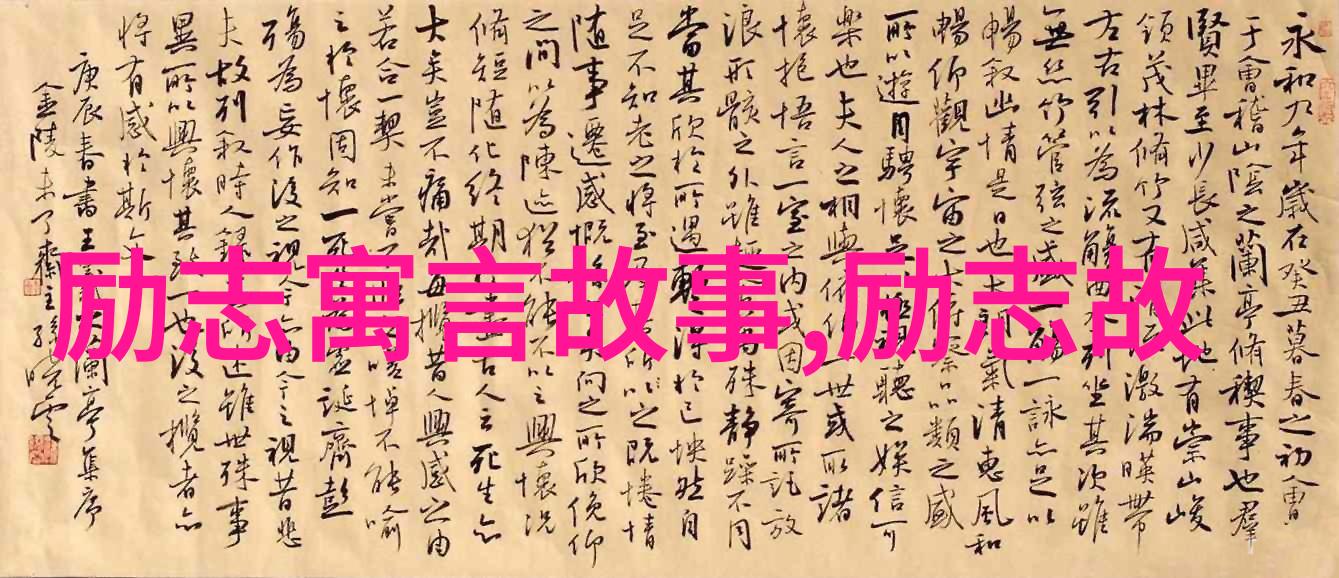 永和九年歲在癸丑暮春之初會
于會稽山陰之蘭亭脩禊事也群
賢畢至少長咸集此地有崇山峻
領茂林脩竹又有清流激湍暎帶
左右引以為流觴曲水列坐其次雖
無絲竹管弦之盛一觴一詠亦足以
暢叙幽情是日也天朗氣清惠風和
暢仰觀宇宙之大俯察品類之盛
所以遊目騁懷足以極視聽之娛信可
樂也夫人之相與俯仰一世或取諸
懷抱悟言一室之内或因寄所託放
浪形骸之外雖趣舍萬殊靜躁不同
當其欣於所遇暫得於己怏然自
足不知老之將至及其所之既惓情
随事遷感慨係之矣向之所欣俛仰
之間以為陳迹猶不能不以之興懷况
脩短随化終期於盡古人云死生亦
大矣豈不痛哉每攬昔人興感之由
若合一契未嘗不臨文嗟悼不能喻
之於懷固知一死生為虛誕齊彭
殤為妄作後之視今亦由今之視昔悲
夫故列叙時人錄其所述雖世殊事
異所以興懷其致一也後之攬者亦
將有感於斯文
庚辰春書王羲之蘭亭集序
金陵未了齋主孫曉雲
励志寓言故事,励志故